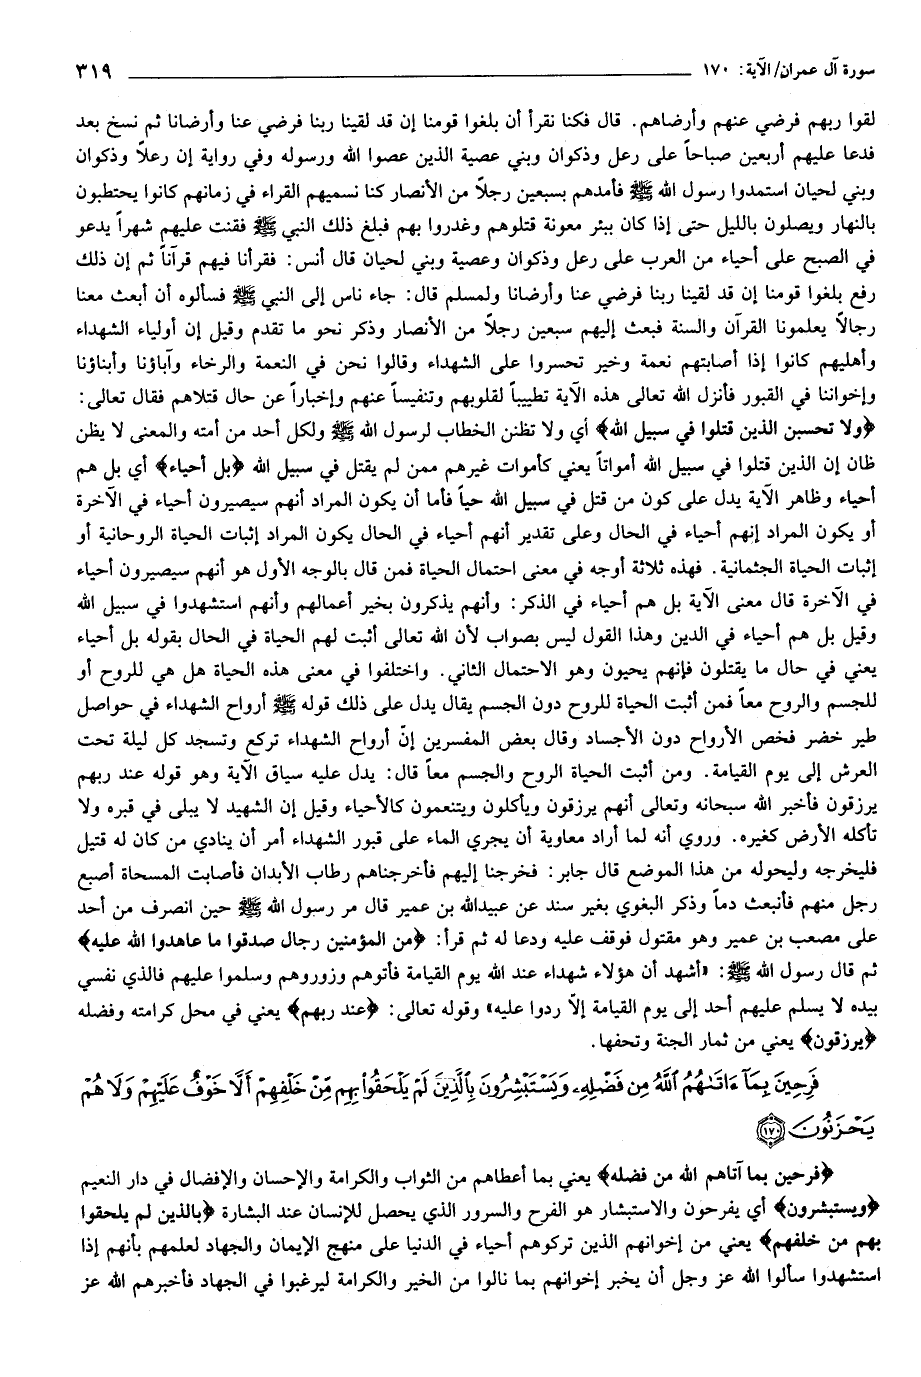 سورة آل عمران/ الآية: ١٧٠ ٣١٩
لقوا ربهم فرضي عنهم وأرضاهم. قال فكنا نقرأ أن بلغوا قومنا إن قد لقينا ربنا فرضي عنا وأرضانا ثم نسخ بعد
فدعا عليهم أربعين صباحاً على رعل وذكوان وبني عصية الذين عصوا الله ورسوله وفي رواية إن رعلاً وذكوان
وبني لحيان استمدوا رسول الله ﷺ فأمدهم بسبعين رجلاً من الأنصار كنا نسميهم القراء في زمانهم كانوا يحتطبون
بالنهار ويصلون بالليل حتى إذا كان ببئر معونة قتلوهم وغدروا بهم فبلغ ذلك النبي ﷺ فقنت عليهم شهراً يدعو
في الصبح على أحياء من العرب على رعل وذكوان وعصية وبني لحيان قال أنس: فقرأنا فيهم قرآناً ثم إن ذلك
رفع بلغوا قومنا إن قد لقينا ربنا فرضي عنا وأرضانا ولمسلم قال: جاء ناس إلى النبي ﷺ فسألوه أن أبعث معنا
رجالاً يعلمونا القرآن والسنة فبعث إليهم سبعين رجلاً من الأنصار وذكر نحو ما تقدم وقيل إن أولياء الشهداء
وأهليهم كانوا إذا أصابتهم نعمة وخير تحسروا على الشهداء وقالوا نحن في النعمة والرخاء وآباؤنا وأبناؤنا
وإخواننا في القبور فأنزل الله تعالى هذه الآية تطييباً لقلوبهم وتنفيساً عنهم وإخباراً عن حال قتلاهم فقال تعالى:
﴿ولا تحسبن الذين قتلوا في سبيل الله﴾ أي ولا تظنن الخطاب لرسول الله ﷺ ولكل أحد من أمته والمعنى لا يظن
ظان إن الذين قتلوا في سبيل الله أمواتاً يعني كأموات غيرهم ممن لم يقتل في سبيل الله ﴿بل أحياء﴾ أي بل هم
أحياء وظاهر الآية يدل على كون من قتل في سبيل الله حياً فأما أن يكون المراد أنهم سيصيرون أحياء في الآخرة
أو يكون المراد إنهم أحياء في الحال وعلى تقدير أنهم أحياء في الحال يكون المراد إثبات الحياة الروحانية أو
إثبات الحياة الجثمانية. فهذه ثلاثة أوجه في معنى احتمال الحياة فمن قال بالوجه الأول هو أنهم سيصيرون أحياء
في الآخرة قال معنى الآية بل هم أحياء في الذكر: وأنهم يذكرون بخير أعمالهم وأنهم استشهدوا في سبيل الله
وقيل بل هم أحياء في الدين وهذا القول ليس بصواب لأن الله تعالى أثبت لهم الحياة في الحال بقوله بل أحياء
يعني في حال ما يقتلون فإنهم يحيون وهو الاحتمال الثاني. واختلفوا في معنى هذه الحياة هل هي للروح أو
للجسم والروح معاً فمن أثبت الحياة للروح دون الجسم يقال يدل على ذلك قوله ﷺ أرواح الشهداء في حواصل
طير خضر فخص الأرواح دون الأجساد وقال بعض المفسرين إنّ أرواح الشهداء تركع وتسجد كل ليلة تحت
العرش إلى يوم القيامة. ومن أثبت الحياة الروح والجسم معاً قال: يدل عليه سياق الآية وهو قوله عند ربهم
يرزقون فأخبر الله سبحانه وتعالى أنهم يرزقون ويأكلون ويتنعمون كالأحياء وقيل إن الشهيد لا يبلى في قبره ولا
تأكله الأرض كغيره. وروي أنه لما أراد معاوية أن يجري الماء على قبور الشهداء أمر أن ينادي من كان له قتيل
فليخرجه وليحوله من هذا الموضع قال جابر: فخرجنا إليهم فأخرجناهم رطاب الأبدان فأصابت المسحاة أصبع
رجل منهم فأنبعث دماً وذكر البغوي بغير سند عن عبيدالله بن عمير قال مر رسول الله ﷺ حين انصرف من أحد
على مصعب بن عمير وهو مقتول فوقف عليه ودعا له ثم قرأ: ﴿من المؤمنين رجال صدقوا ما عاهدوا الله عليه﴾
ثم قال رسول الله ﷺ: «أشهد أن هؤلاء شهداء عند الله يوم القيامة فأتوهم وزوروهم وسلموا عليهم فالذي نفسي
بيده لا يسلم عليهم أحد إلى يوم القيامة إلاّ ردوا عليه» وقوله تعالى: ﴿عند ربهم﴾ يعني في محل كرامته وفضله
﴿يرزقون﴾ يعني من ثمار الجنة وتحفها.
فَرِحِينَ بِمَآ ءَاتَىٰهُمُ ٱللَّهُ مِن فَضْلِهِۦ وَيَسْتَبْشِرُونَ بِٱلَّذِينَ لَمْ يَلْحَقُوا۟ بِهِم مِّنْ خَلْفِهِمْ أَلَّا خَوْفٌ عَلَيْهِمْ وَلَا هُمْ
يَحْزَنُونَ ١٧٠
﴿فرحين بما آتاهم الله من فضله﴾ يعني بما أعطاهم من الثواب والكرامة والإحسان والإفضال في دار النعيم
﴿ويستبشرون﴾ أي يفرحون والاستبشار هو الفرح والسرور الذي يحصل للإنسان عند البشارة ﴿بالذين لم يلحقوا
بهم من خلفهم﴾ يعني من إخوانهم الذين تركوهم أحياء في الدنيا على منهج الإيمان والجهاد لعلمهم بأنهم إذا
استشهدوا سألوا الله عز وجل أن يخبر إخوانهم بما نالوا من الخير والكرامة ليرغبوا في الجهاد فأخبرهم الله عز